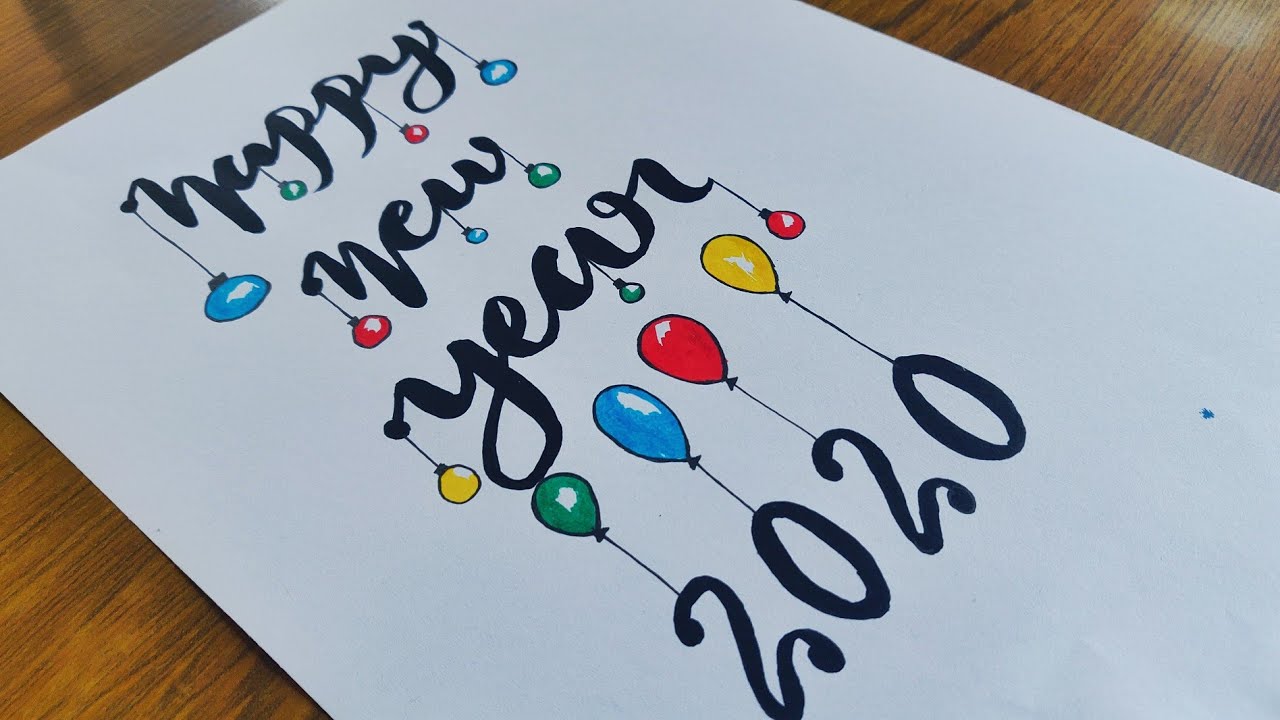 happy
New
Year
2020